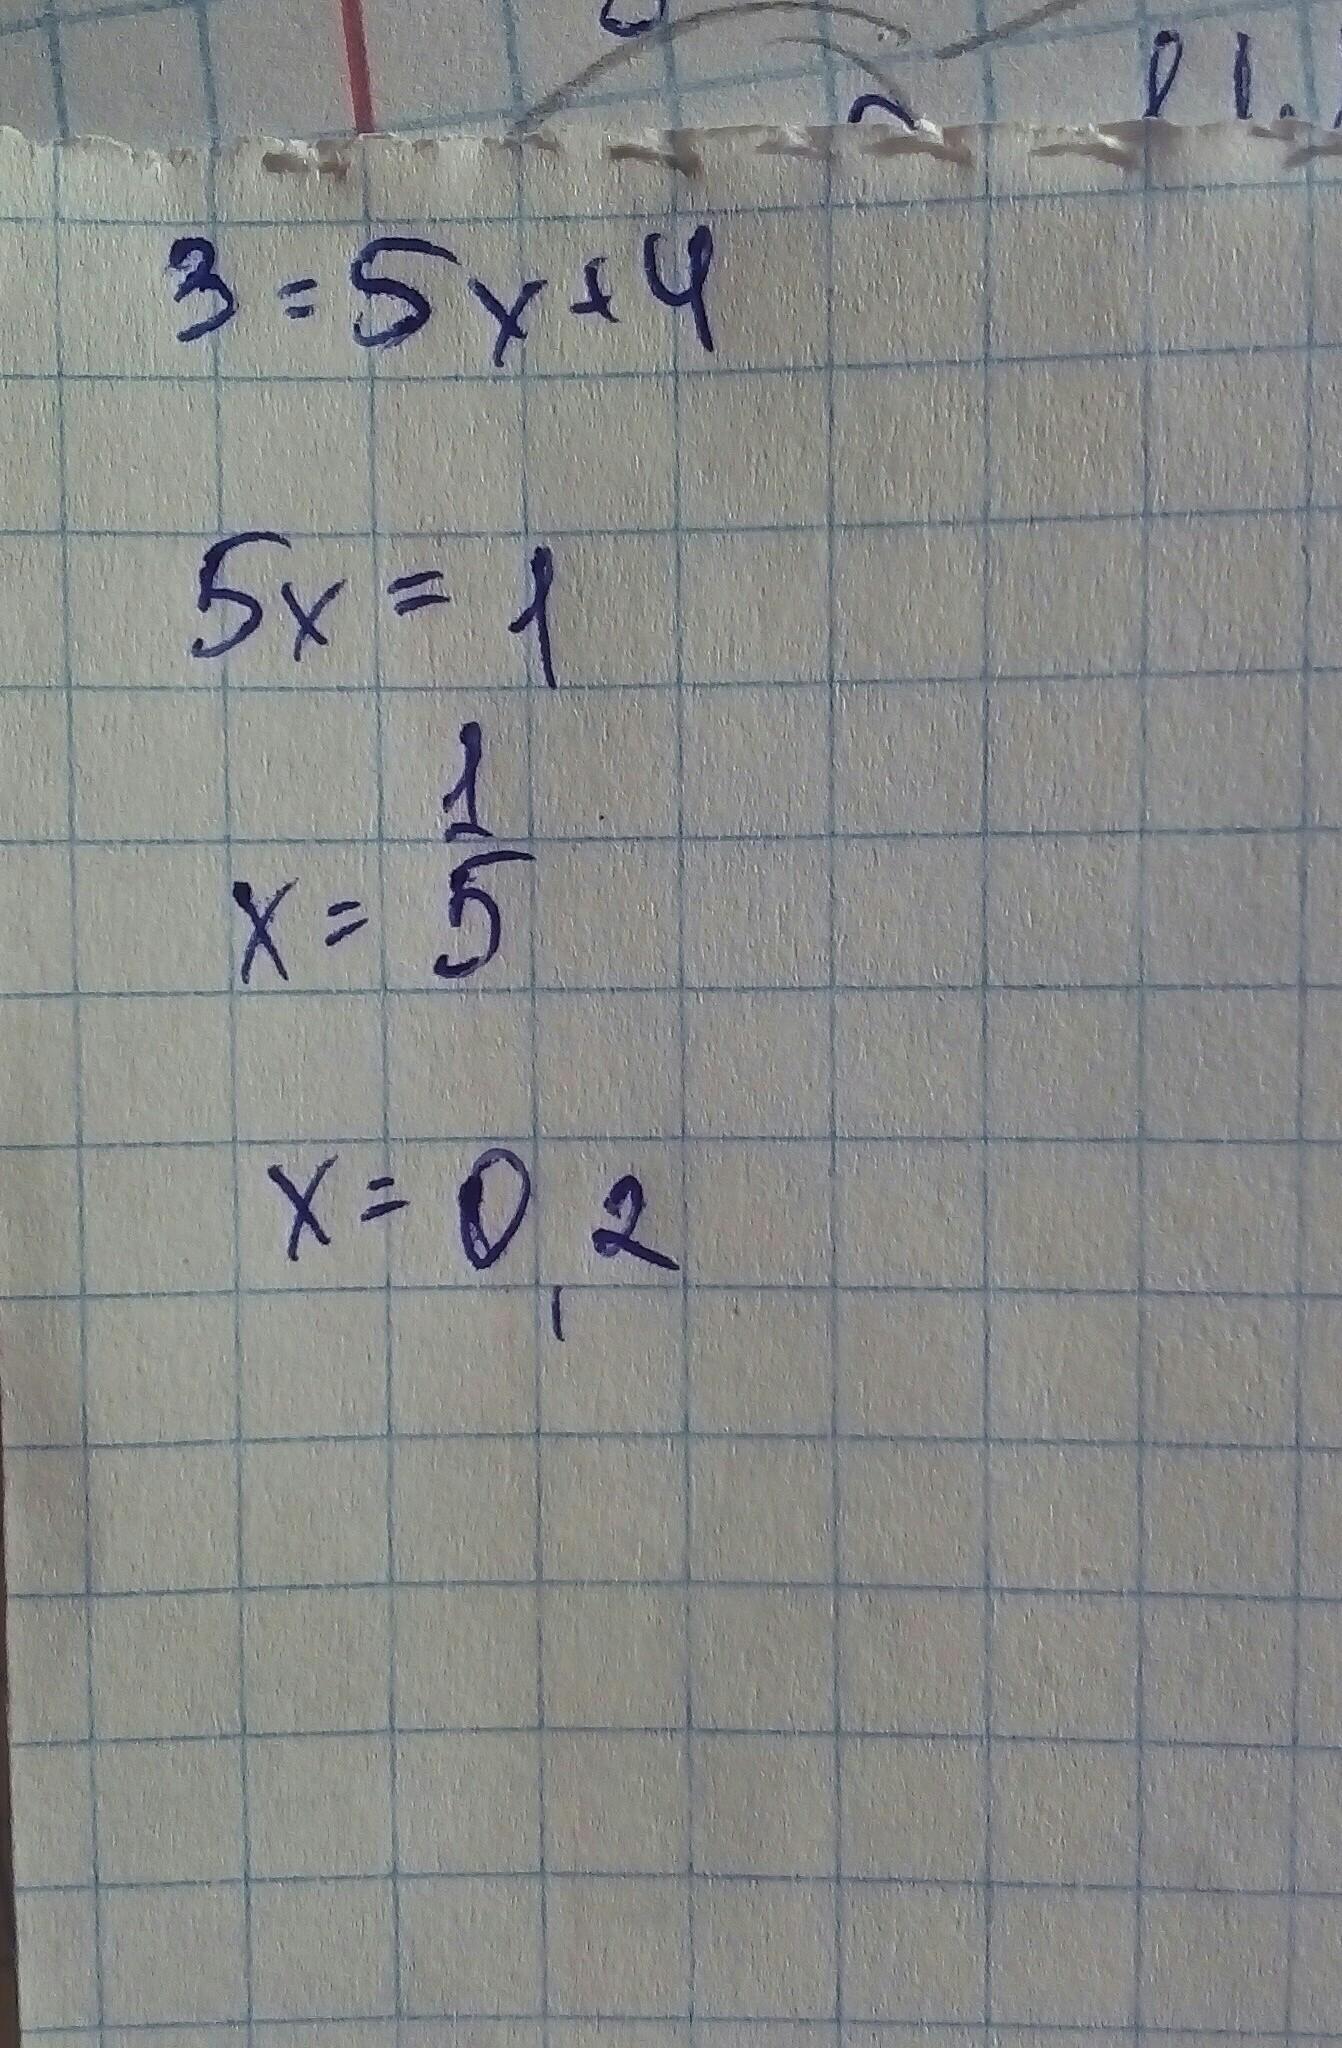 3 = 5x + 4
5x = 1
x = 1/5
x = 0,2